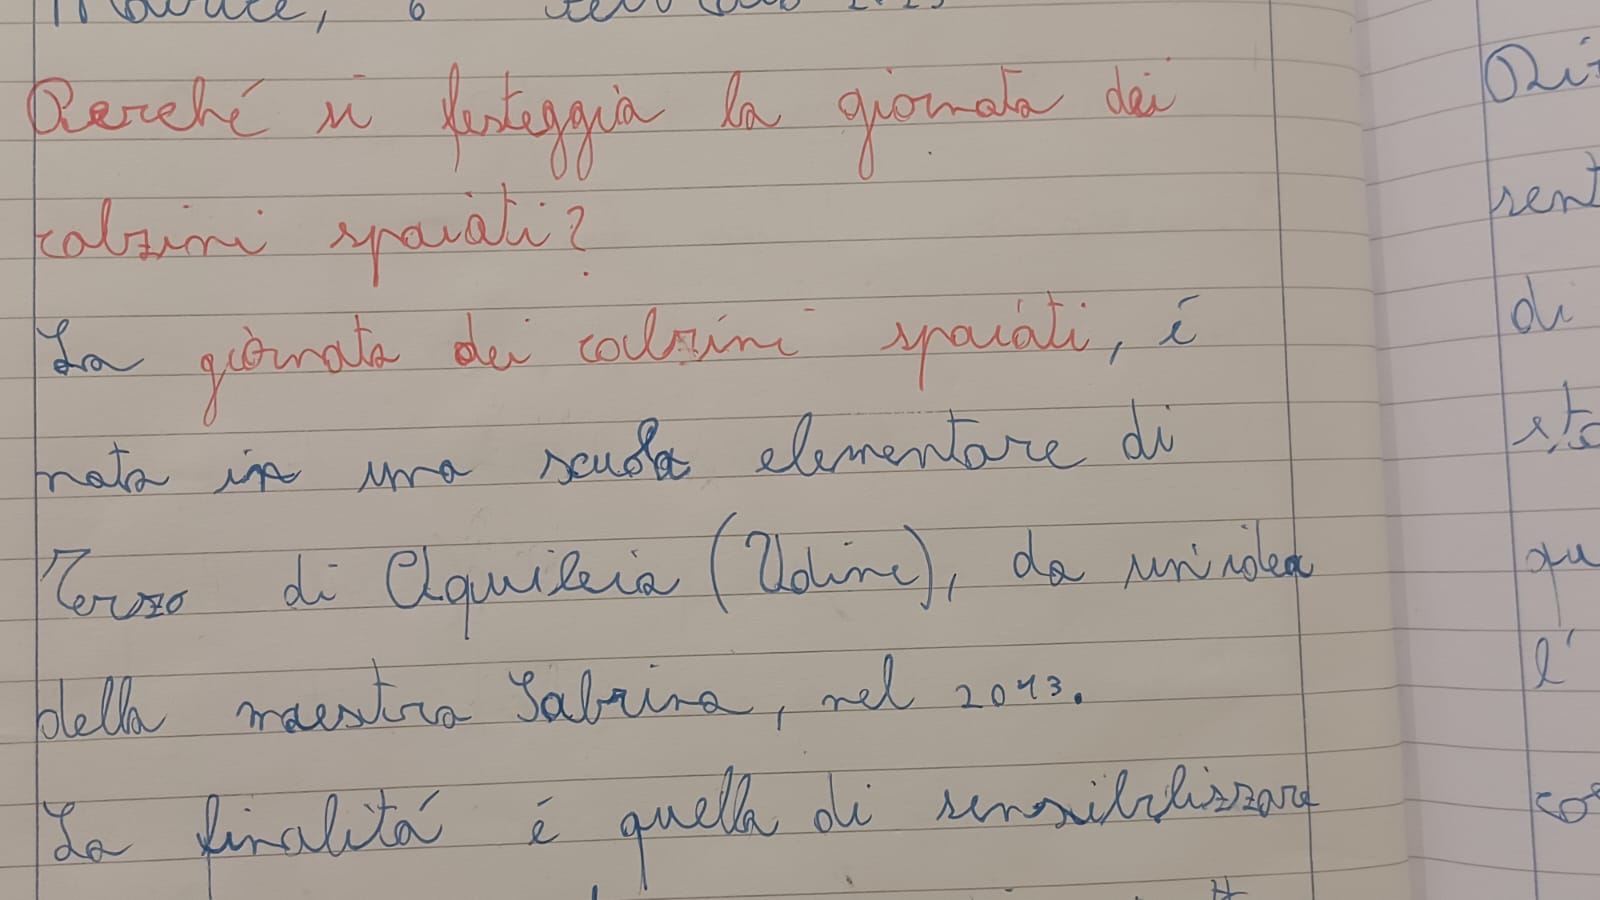 Perché si festeggia la giornata dei
calzini spaiati?
La giornata dei calzini spaiati, é
nata in una scuola elementare di
Terzo di Aquileia (Udine), da un'idea
della maestra Sabrina, nel 2013.
La finalitá é quella di sensibilizzare
di
l'